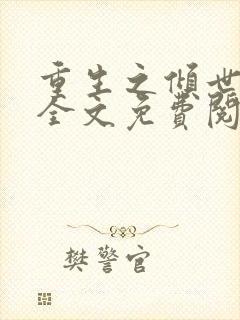 重生之倾世
全文免費閱
樊警官